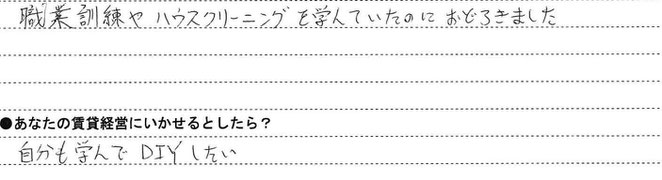 職業訓練や ハウスクリーニングを学んでいたのに おどろきました
●あなたの賃貸経営にいかせるとしたら？
自分も学んで DIYしたい